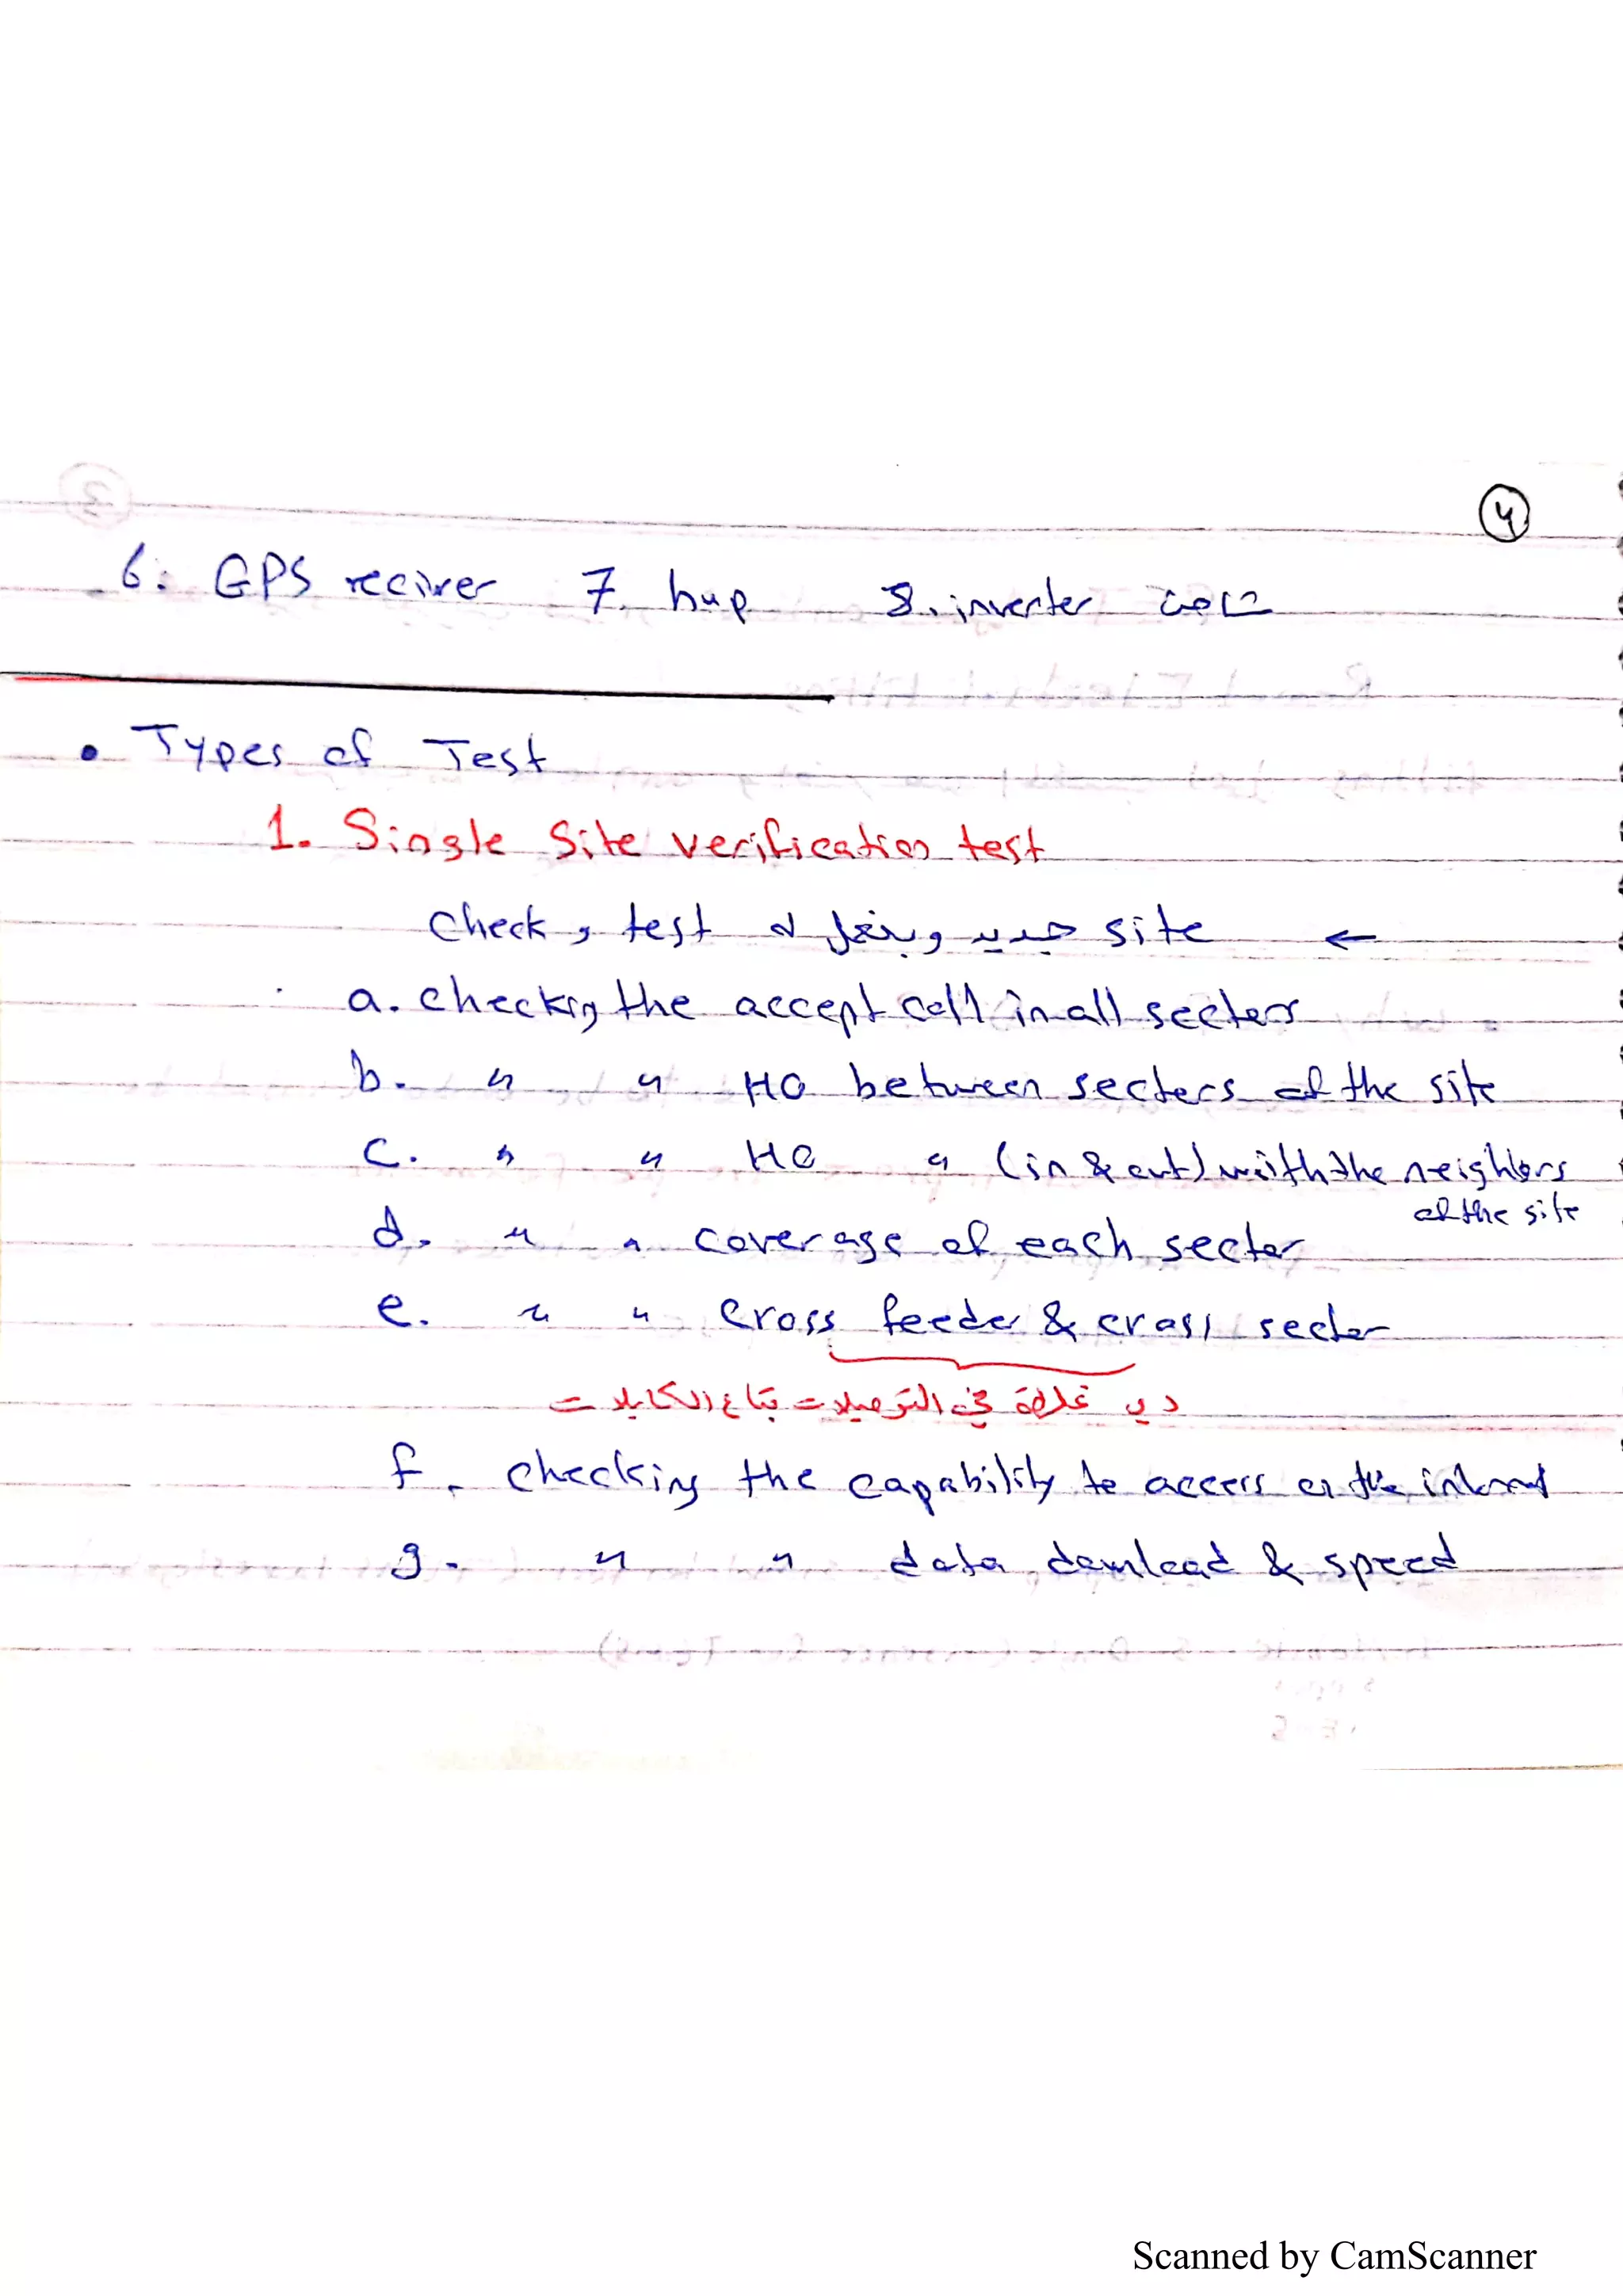 4
6. GPS reciver 7. hup 8. inverter شاحن
• Types of Test
1. Single Site verification test
← site جديد وبنعمل له test و check
a. checking the accept call in all sectors
b. " " HO between sectors of the site
c. " " HO " (in & out) with the neighbors
of the site
d. " " coverage of each sector
e. " " cross feeder & cross sector
دي غلطة في التوصيلات بتاع الكابلات
f. checking the capability to access on the internet
g. " " data download & speed
Scanned by CamScanner